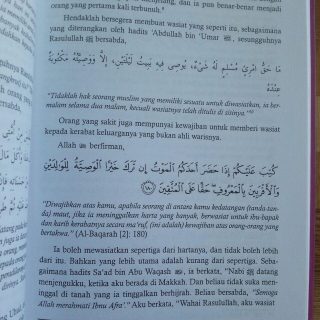 orang yang pertama kali terbunuh.⁸
Hendaklah bersegera membuat wasiat yang seperti itu, sebagaimana
yang diterangkan oleh hadits 'Abdullah bin 'Umar ﷺ, sesungguhnya
Rasulullah ﷺ bersabda,
مَا حَقُّ امْرِئٍ مُسْلِمٍ لَهُ شَيْءٌ، يُوصِى فِيهِ يَبِيتُ لَيْلَتَيْنِ، إِلاَّ وَوَصِيَّتُهُ مَكْتُوبَةٌ
عِنْدَهُ
"Tidaklah hak seorang muslim yang memiliki sesuatu untuk diwasiatkan, ia ber-
malam selama dua malam, kecuali wasiatnya telah ditulis di sisinya."⁹
Orang yang sakit juga mempunyai kewajiban untuk memberi wasiat
kepada kerabat keluarganya yang bukan ahli warisnya.
Allah berfirman,
كُتِبَ عَلَيْكُمْ إِذَا حَضَرَ أَحَدَكُمُ الْمَوْتُ إِن تَرَكَ خَيْرًا الْوَصِيَّةُ لِلْوَالِدَيْنِ
وَالْأَقْرَبِينَ بِالْمَعْرُوفِ حَقًّا عَلَى الْمُتَّقِينَ ﴿١٨٠﴾
"Diwajibkan atas kamu, apabila seorang di antara kamu kedatangan (tanda-tan-
da) maut, jika ia meninggalkan harta yang banyak, berwasiat untuk ibu-bapak
dan karib kerabatnya secara ma'ruf, (ini adalah) kewajiban atas orang-orang yang
bertakwa." (Al-Baqarah [2]: 180)
Ia boleh mewasiatkan sepertiga dari hartanya, dan tidak boleh lebih
dari itu. Bahkan yang lebih utama adalah kurang dari sepertiga. Seba-
gaimana hadits Sa'ad bin Abu Waqash, ia berkata, "Nabi ﷺ datang
menjengukku, ketika aku berada di Makkah. Dan beliau tidak suka men-
inggal di tanah yang ia tinggalkan berhijrah. Beliau bersabda, "Semoga
Allah merahmati Ibnu Afra'." Aku berkata, "Wahai Rasulullah, aku wasiat